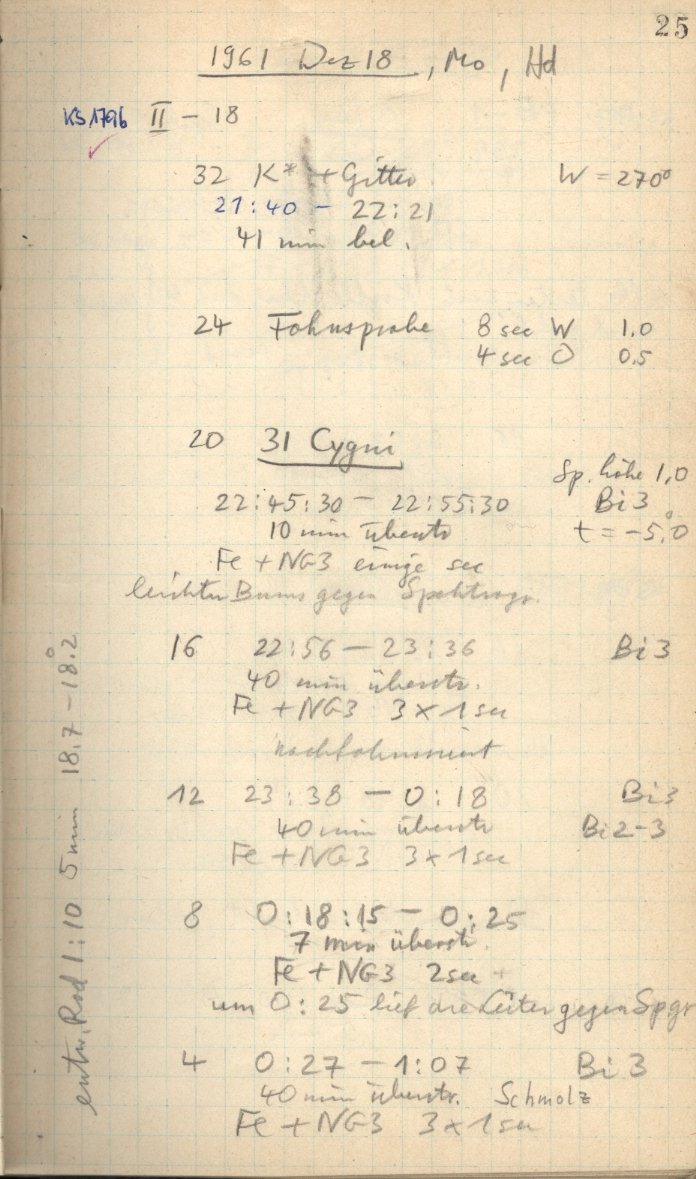 25
1961 Dez 18, Mo, Hd
KS 1796 II - 18
32 K* + Gitter W = 270°
21:40 - 22:21
41 min bel.
24 Fokusprobe 8 sec W 1.0
4 sec O 0.5
20 31 Cygni
Sp. höhe 1,0
22:45:30 - 22:55:30 Bi 3
10 min überstr t = -5,0°
Fe + NG3 einige sec
leichter Bums gegen Spektrogr.
16 22:56 - 23:36 Bi 3
40 min überstr.
Fe + NG3 3 x 1 sec
nachfokussiert
12 23:38 - 0:18 Bi 3
40 min überstr Bi 2-3
Fe + NG3 3 x 1 sec
8 0:18:15 - 0:25
7 min überstr.
Fe + NG3 2 sec
um 0:25 lief die Leiter gegen Spgr
4 0:27 - 1:07 Bi 3
40 min überstr. Schmolz
Fe + NG3 3 x 1 sec
entw. Rod 1:10 5 min 18,7 - 18,2°